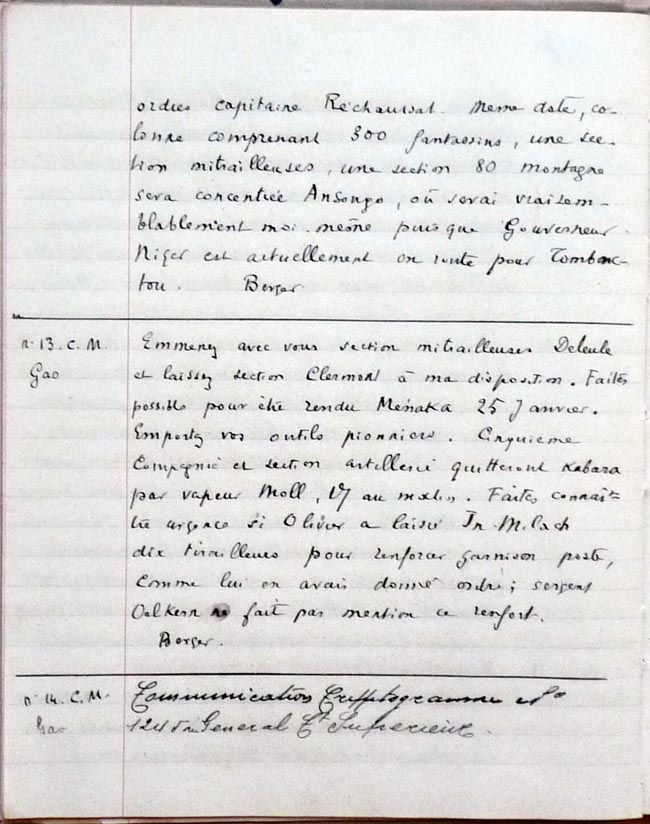 ordres capitaine Réchaussat. Même date, co-
lonne comprenant 300 fantassins, une sec-
tion mitrailleuses, une section 80 montagne
sera concentrée Ansongo, où serai vraisem-
blablement moi-même puisque Gouverneur
Niger est actuellement en route pour Tombouc-
tou. Berger
n° 13. C. M. Emmenez avec vous section mitrailleuses Deleule
Gao et laissez section Clermont à ma disposition. Faites
possible pour être rendu Ménaka 25 Janvier.
Emportez vos outils pionniers. Cinquième
Compagnie et section artillerie quitteront Kabara
par vapeur Moll, 17 au matin. Faites connaî-
tre urgence si Olivier a laissé In-Milach
dix tirailleurs pour renforcer garnison poste,
comme lui en avais donné ordre; sergent
Oelkern ne fait pas mention ce renfort.
Berger.
n° 14. C. M. Communication Cryptogramme No
Gao General Ct Supérieur